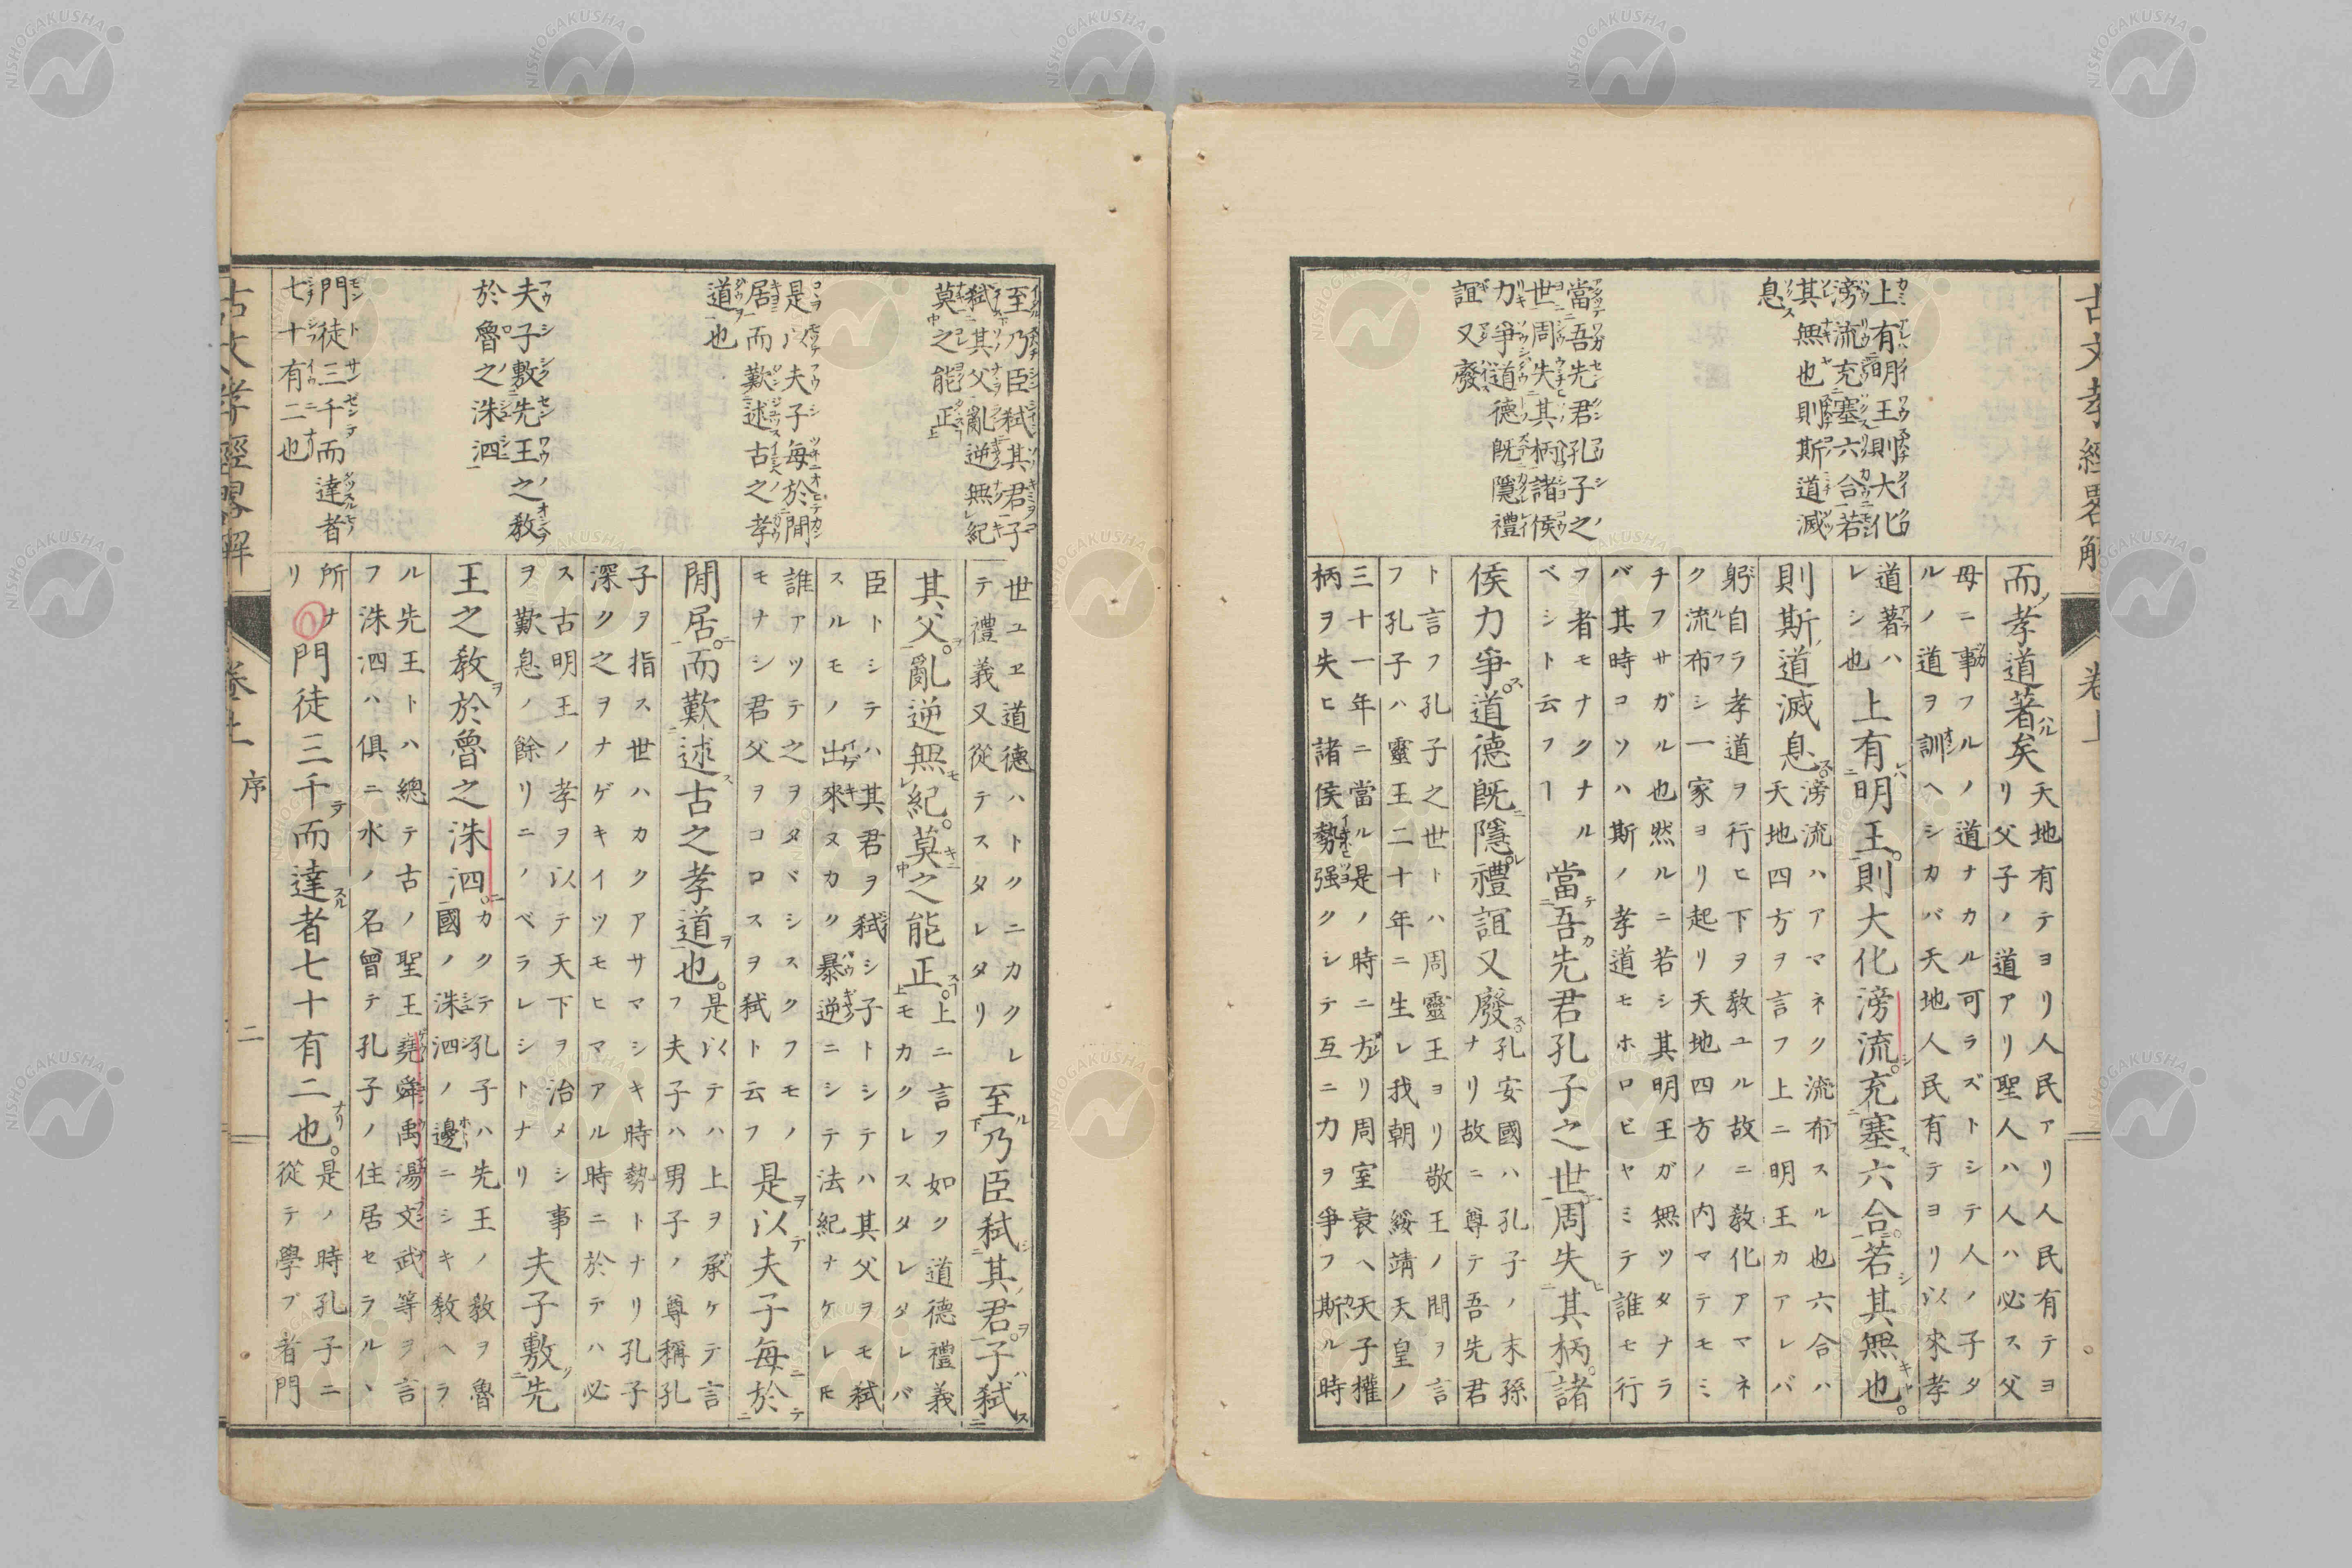 古文孝經畧解 卷上
上有明王則大化
滂流充塞六合若
其無也則斯道滅
息
當吾先君孔子之
世周失其柄諸侯
力爭道德既隱禮
誼又廢
而孝道著矣
天地有テヨリ人民アリ人民有テヨ
リ父子ノ道アリ聖人ハ人ハ必ス父
母ニ事フルノ道ナカル可ラズトシテ人ノ子タ
ルノ道ヲ訓ヘシカバ天地人民有テヨリ以來孝
道著ハ
レシ也
上有明王則大化滂流充塞六合若其無也
則斯道滅息
滂流ハアマネク流布スル也六合ハ
天地四方ヲ言フ上ニ明王カアレバ
躬自ラ孝道ヲ行ヒ下ヲ敎ユル故ニ敎化アマネ
ク流布シ一家ヨリ起リ天地四方ノ内マテモミ
チフサガル也然ルニ若シ其明王ガ無ツタナラ
バ其時コソハ斯ノ孝道モホロビヤミテ誰モ行
フ者モナクナル
ベシト云フヿ
當吾先君孔子之世周失其柄諸
侯力爭道德既隱禮誼又廢
孔安國ハ孔子ノ末孫
ナリ故ニ尊テ吾先君
ト言フ孔子之世トハ周靈王ヨリ敬王ノ間ヲ言
フ孔子ハ靈王二十年ニ生レ我朝綏靖天皇ノ
三十一年ニ當ル是ノ時ニ方リ周室衰ヘ天子權
柄ヲ失ヒ諸侯勢强クシテ互ニ力ヲ爭フ斯ル時
至乃臣弑其君子
弑其父亂逆無紀
莫之能正
是以夫子每於閒
居而歎述古之孝
道也
夫子敷先王之敎
於魯之洙泗
門徒三千而達者
七十有二也
世ユヱ道德ハトクニカクレ
テ禮義又從テスタレタリ
至乃臣弑其君子弑
其父亂逆無紀莫之能正
上ニ言フ如ク道德禮義
モカクレスタレタレバ
臣トシテハ其君ヲ弑シ子トシテハ其父ヲモ弑
スルモノ出來ヌカク暴逆ニシテ法紀ナケレドモ
誰アツテ之ヲタヾシスクフモノ
モナシ君父ヲコロスヲ弑ト云フ
是以夫子每於
閒居而歎述古之孝道也
是以テハ上ヲ承ケテ言
フ夫子ハ男子ノ尊稱孔
子ヲ指ス世ハカクアサマシキ時勢トナリ孔子
深ク之ヲナゲキイツモヒマアル時ニ於テハ必
ス古明王ノ孝ヲ以テ天下ヲ治メシ事
ヲ歎息ノ餘リニノベラレシトナリ
夫子敷先
王之敎於魯之洙泗
カクテ孔子ハ先王ノ敎ヲ魯
國ノ洙泗ノ邊ニシキ敎ヘラ
ル先王トハ總テ古ノ聖王堯舜禹湯文武等ヲ言
フ洙泗ハ俱ニ水ノ名曾テ孔子ノ住居セラルヽ
所ナ
リ
門徒三千而達者七十有二也
是ノ時孔子ニ
從テ學ブ者門
古文孝經畧解 卷上 序 二
NISHOGAKUSHA